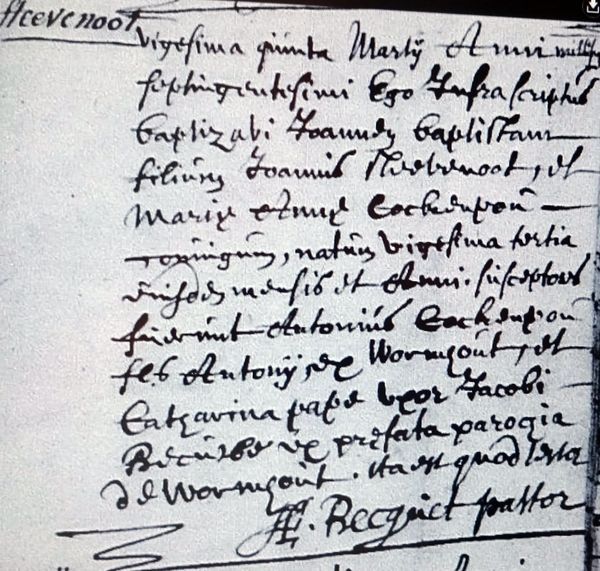 Steevenoot
vigesima quinta Martij Anni
septingentesimi Ego Infrascriptus
baptizavi Joannem baptistam
filium Joannis Steevenoot, et
Mariæ Annæ Cockenpou
conjugum, natum vigesima tertia
eiusdem mensis et Anni. susceptores
fuerunt Antonius Cockenpou
fls Antonij ex Wormhout, et
Catharina pape uxor Jacobi
ex præfata parogia
de Wormhout. ita est quod testor
Becquet pastor